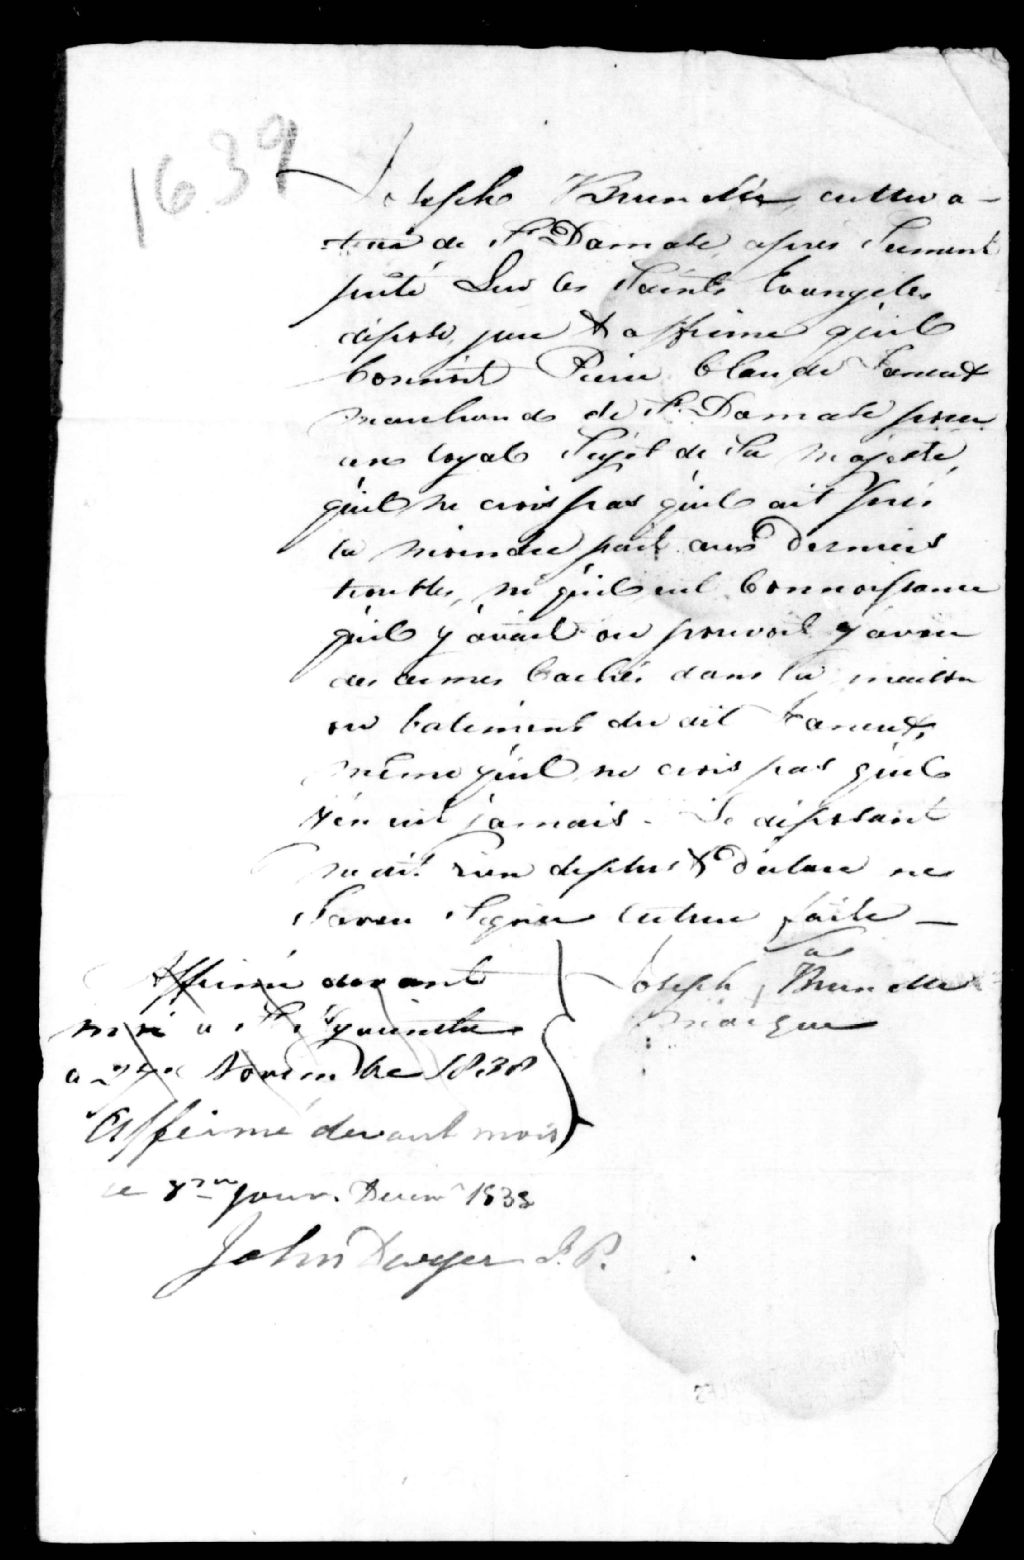 1639
Joseph Brunelle, cultiva-
teur de St Damase, apres Serment
prêté Sur les Saints Evangiles
dépose, jure & affirme qu'il
Connoit Pierre Claude Fameux
marchand de St Damase pour
un loyal Sujet de Sa Majesté,
qu'il ne crois pas qu'il ait pris
la moindre part aux derniers
troubles, ni qu'il eut Connoissance
qu'il y avait ou pouvoit y avoir
des armes Cachés dans la maison
ou batiment du dit Fameux,
même qu'il ne crois pas qu'il
y en eut jamais. Le déposant
ne dit rien de plus & déclare ne
Savoir Signer lecture faite —
Affirmé devant
moi a St Hyacinthe
a Novembre 1838
Joseph Brunelle
marque
Affirmé devant moi
ce 8me jour. Decemr 1838
John Dwyer J.P.